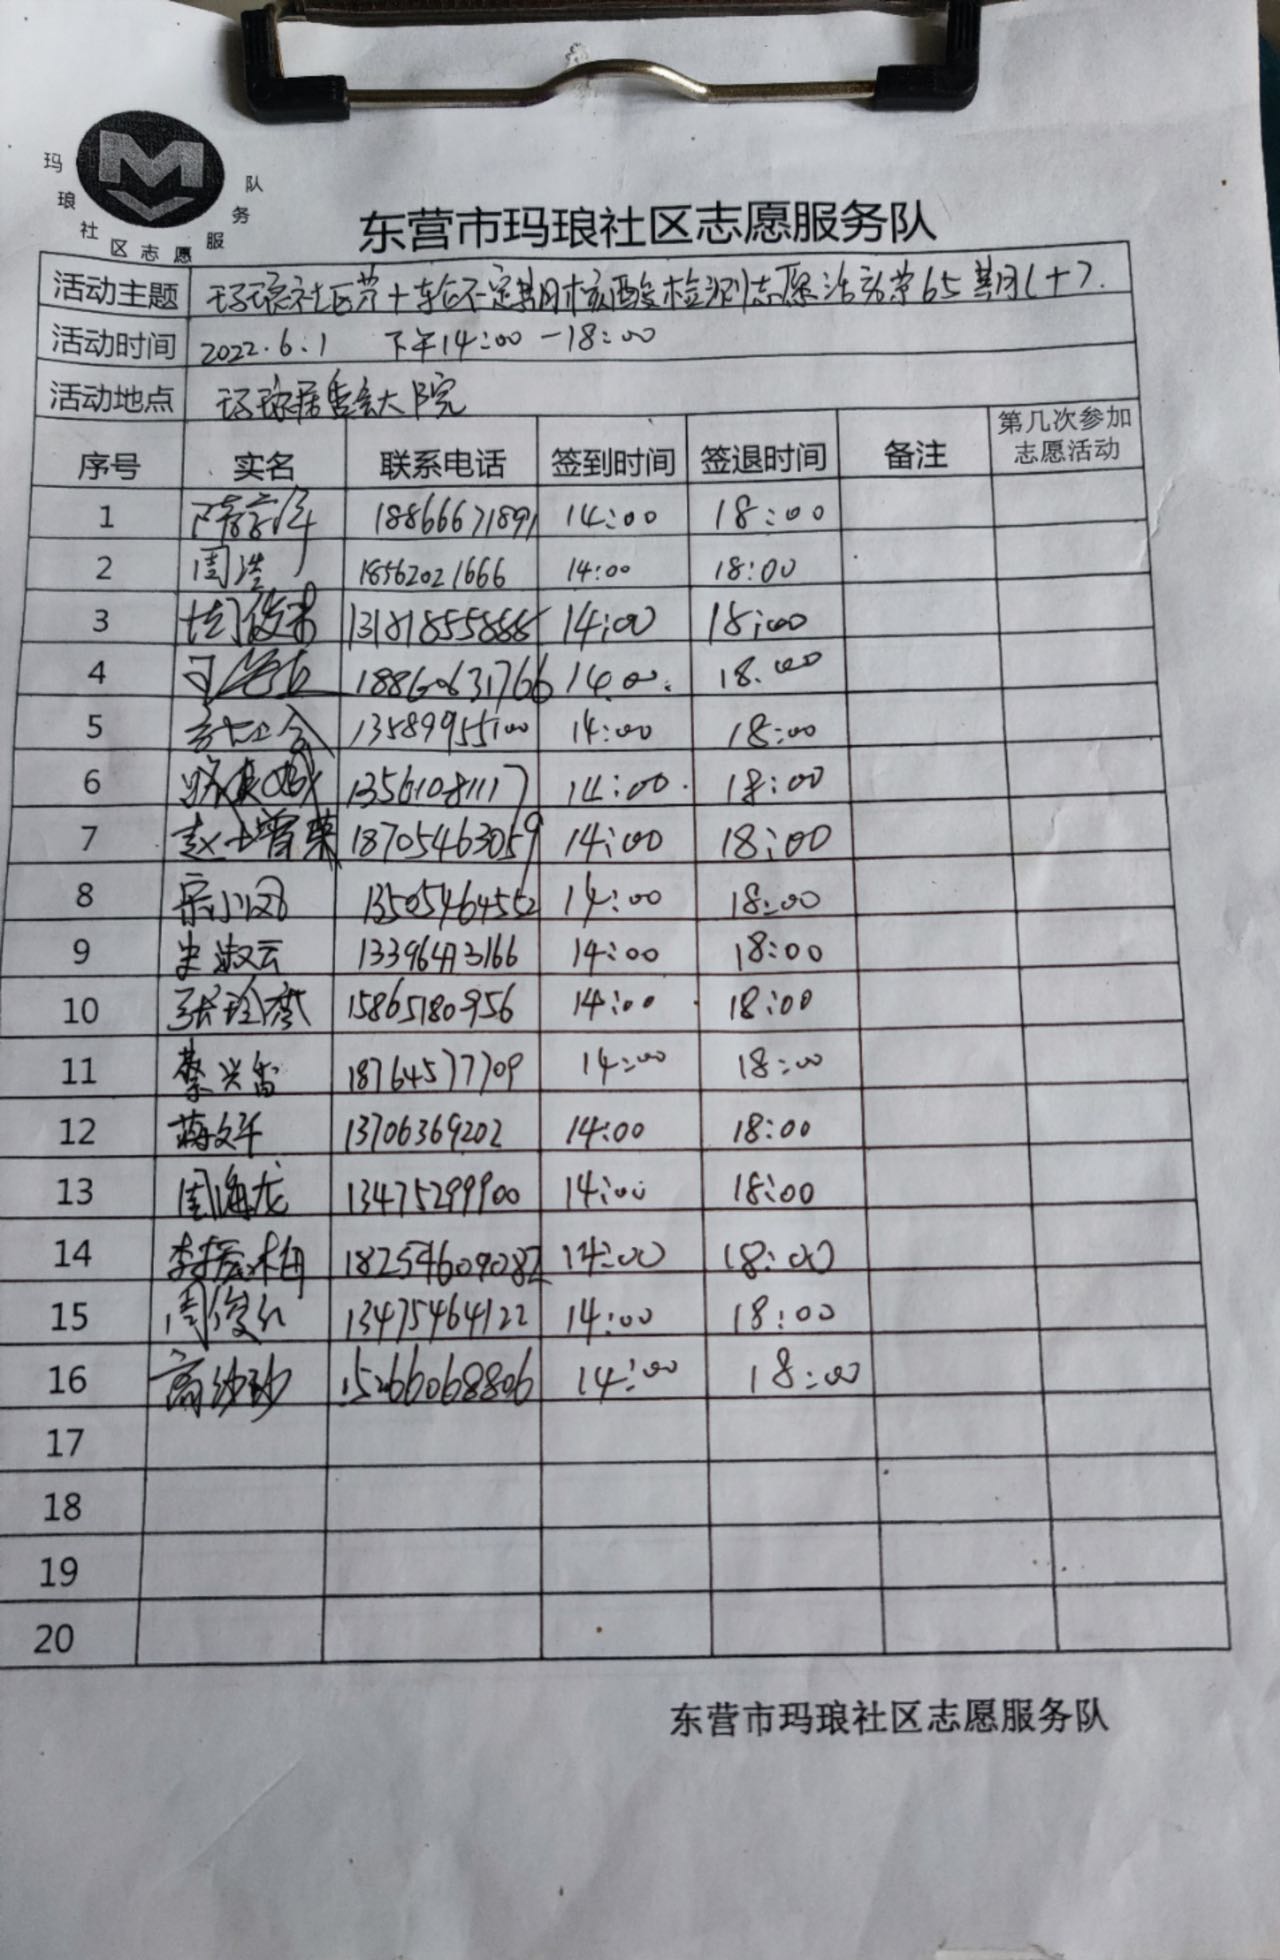 玛琅社区志愿服务队
东营市玛琅社区志愿服务队
活动主题 玛琅社区第十轮不定期核酸检测志愿活动第65期(十).
活动时间 2022.6.1 下午14:00-18:00
活动地点 玛琅居委会大院
序号 实名 联系电话 签到时间 签退时间 备注 第几次参加志愿活动
1 18866671891 14:00 18:00
2 周浩 18562021666 14:00 18:00
3 14:00 18:00
4 18860631766 14:00. 18:00
5 13589955100 14:00 18:00
6 13561081117 14:00. 18:00
7 赵增荣 18705463059 14:00 18:00
8 宗小凤 13505464552 14:00 18:00
9 史淑云 14:00 18:00
10 15865180956 14:00 18:00
11 蔡兴雷 18764577709 14:00 18:00
12 蒋文华 13706369202 14:00 18:00
13 周海龙 13475299900 14:00 18:00
14 14:00 18:00
15 周俊红 13475464122 14:00 18:00
16 高 15266068806 14:00 18:00
17
18
19
20
东营市玛琅社区志愿服务队